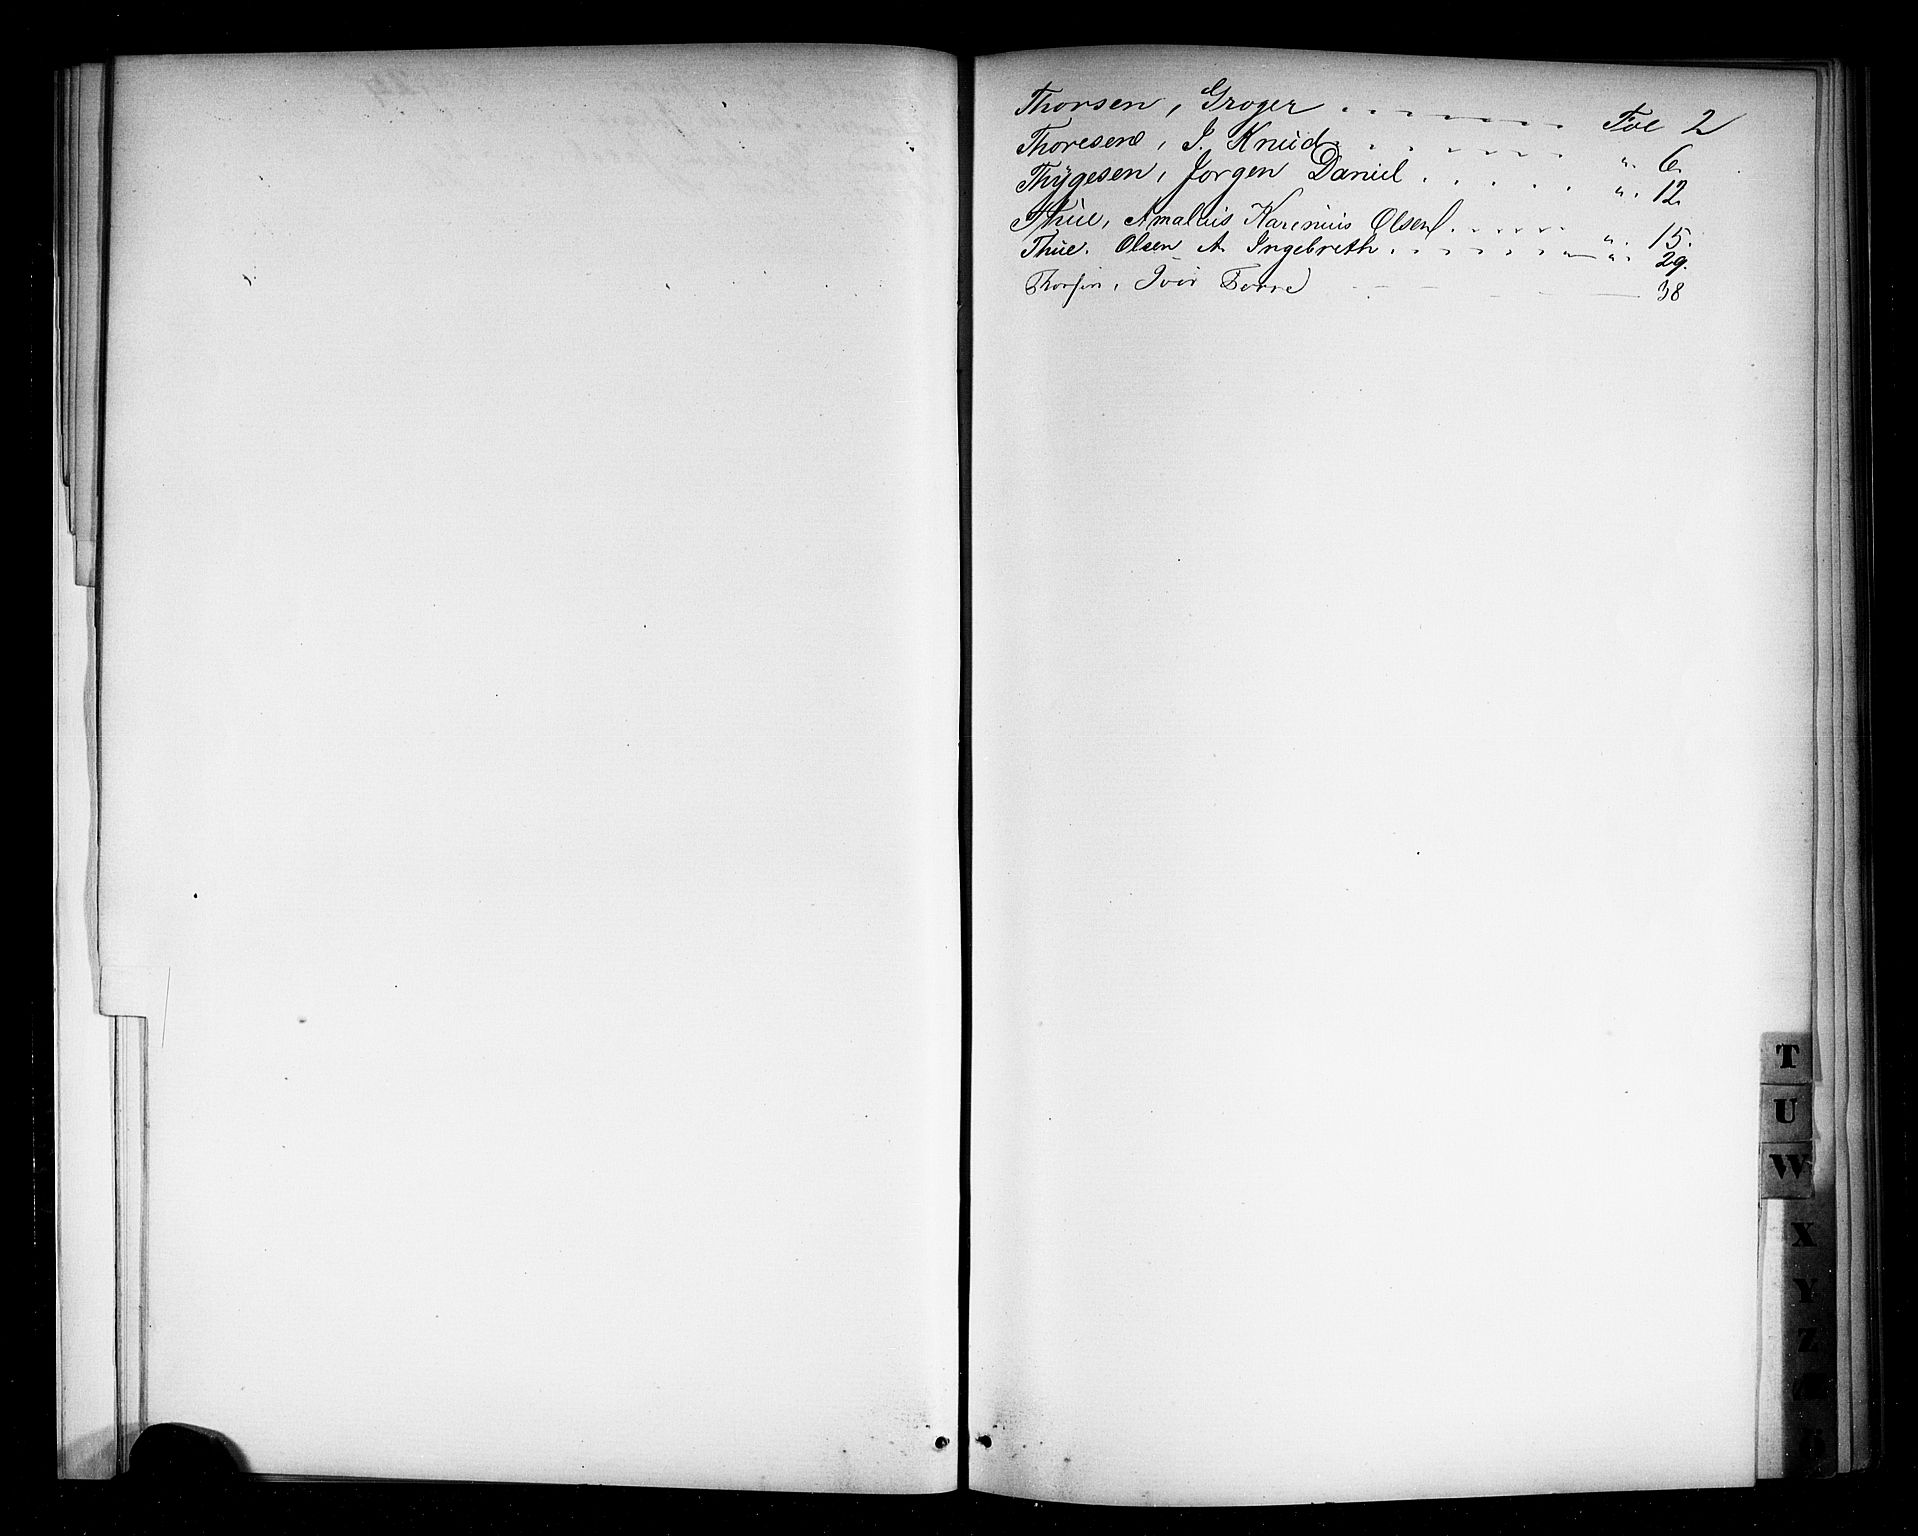 Thorsen, Groger . . . . . . . Fol 2
Thoresen, I. Knud . . . . . . " 6.
Thygesen, Jorgen Daniel . . . . . " 12.
Thue, Amalius Karenius Olsen . . . . . " 15.
Thue. Olsen A. Ingebreth . . . . . . . " 29.
Iver Torre 38
T
U
W
X
Y
Z